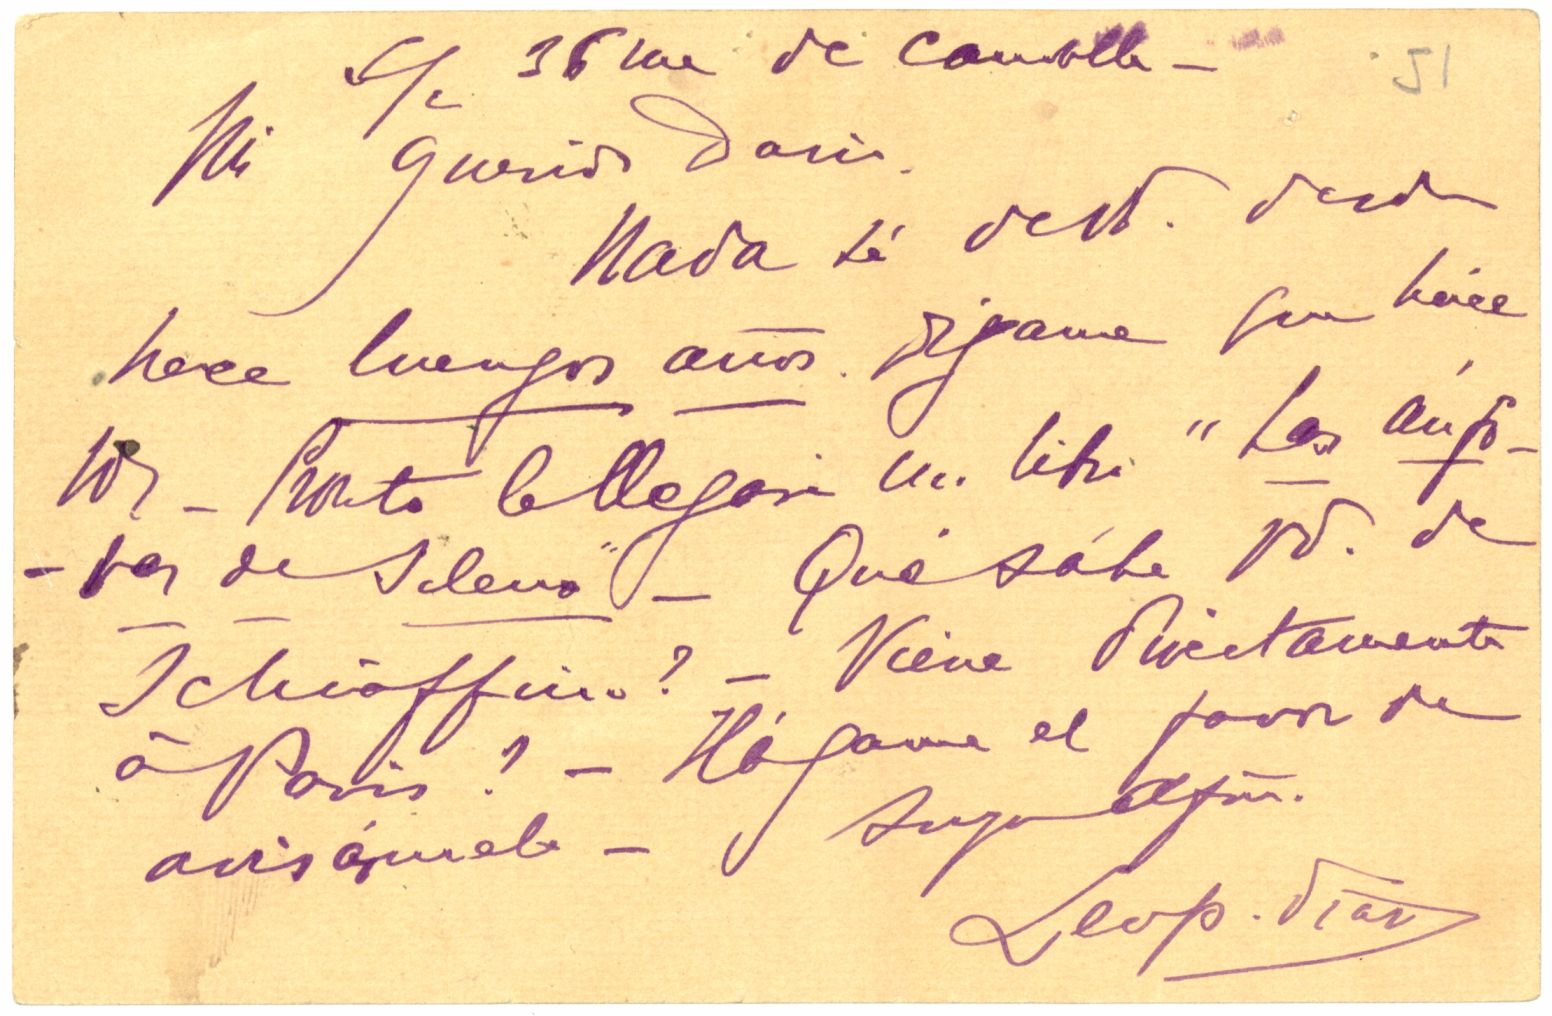 S/c 36 rue de Candolle —
51
Mi querido Dario.
Nada sé de Vd. desde
hace luengos años. Dígame que hace
Vd. — Pronto le llegará un libro "Las ánfo-
-ras de Sileno" — Qué sabe Vd. de
Schiaffino? — Viene directamente
á Paris? — Hágame el favor de
avisármelo — Suyo afmo.
Leop. Díaz